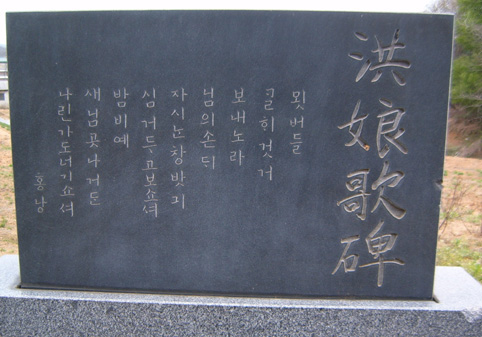 洪娘歌碑
묏버들
골휘것거
보내노라
님의손듸
자시는창밧긔
심거두고보쇼셔
밤비예
새닙곳나거든
나린가도너기쇼셔
홍낭